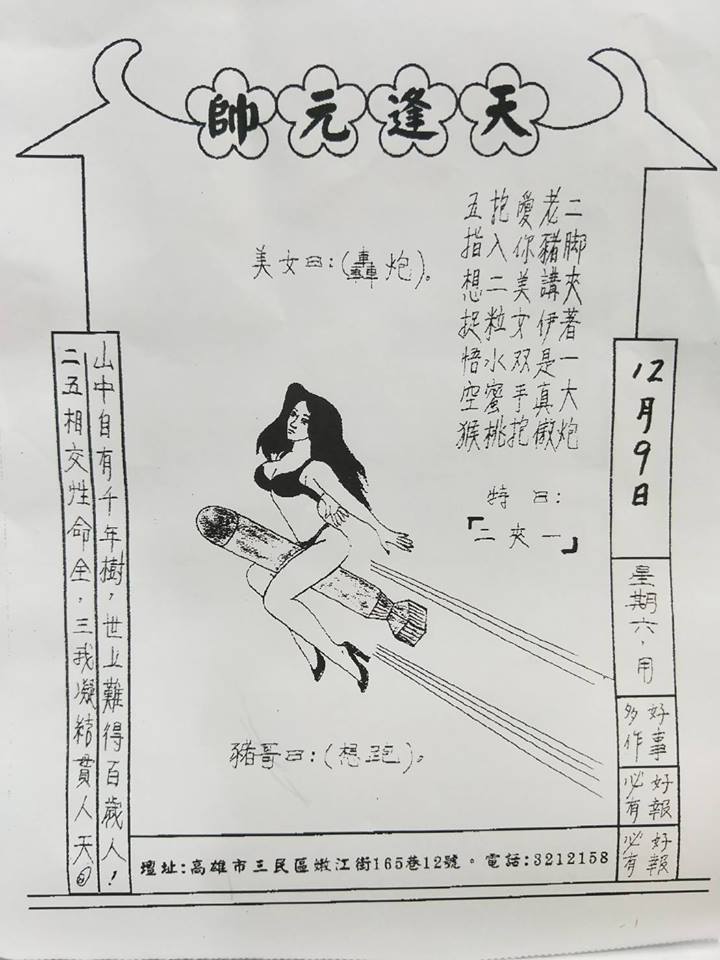 帥元逢天
二脚夾著一大炮
老豬講伊是真傲
愛你美女双手抱
抱入二粒水蜜桃
五指想捉悟空猴
特曰:
「二夾一」
美女曰:(轟炮)。
豬哥曰:(想跑)。
12月9日
星期六,用
好事
多作
好報
必有
好報
必有
山中自有千年樹,世上難得百歲人!
二五相交性命全,三我凝結貫人天
壇址:高雄市三民區嫩江街165巷12號。電話:3212158